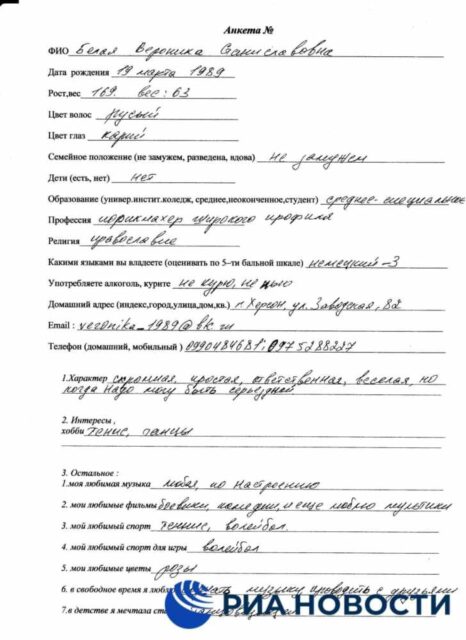 Анкета №
ФИО Белая Вероника Станиславовна
Дата рождения 19 марта 1989
Рост,вес 169. вес: 63
Цвет волос русый
Цвет глаз карий
Семейное положение (не замужем, разведена, вдова) не замужем
Дети (есть, нет) нет
Образование (универ.инстит.коледж, среднее,неоконченное,студент) среднее-специальное
Профессия парикмахер широкого профиля
Религия православие
Какими языками вы владеете (оценивать по 5-ти бальной шкале) немецкий-3
Употребляете алкоголь, курите не курю, не пью
Домашний адрес (индекс,город,улица,дом,кв.) г. Херсон, ул. Заводская, 82
Email : veronika_1989@bk.ru
Телефон (домашний, мобильный ) 0990484681; 0975288227
1.Характер скромная, простая, ответственная, веселая, но
когда надо могу быть серьезной
2. Интересы ,
хобби тенис, танцы
3. Остальное :
1.моя любимая музыка любая, по настроению
2. мои любимые фильмы боевики, комедии, и еще люблю мультики
3. мой любимый спорт теннис, волейбол.
4. мой любимый спорт для игры волейбол
5. мои любимые цветы розы
6. в свободное время я люблю музыку проводить с друзьями
7.в детстве я мечтала
РИА НОВОСТИ